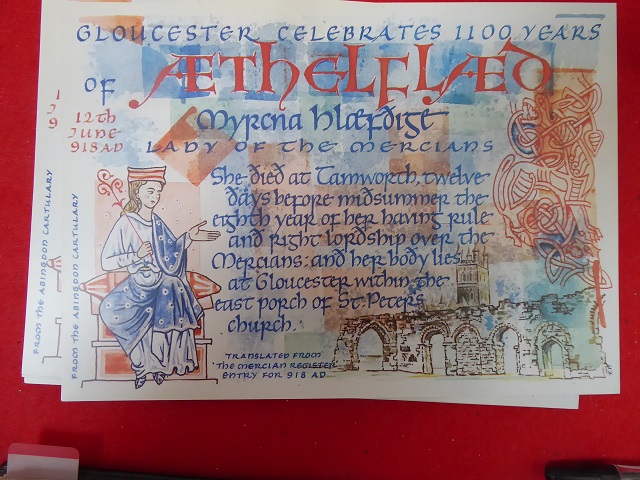 GLOUCESTER CELEBRATES 1100 YEARS
OF ÆTHELFLÆD
12TH
JUNE
918 AD
Myrcna Hlæfdige
LADY OF THE MERCIANS
She died at Tamworth, twelve
days before midsummer the
eighth year of her having rule
and right lordship over the
Mercians: and her body lies
at Gloucester within the
east porch of St. Peters
church.
TRANSLATED FROM
THE MERCIAN REGISTER
ENTRY FOR 918 AD
FROM THE ABINGDON CARTULARY
FROM THE ABINGDON CARTULARY